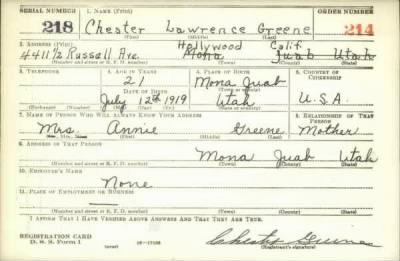 SERIAL NUMBER 1. NAME (Print) ORDER NUMBER
218 Chester Lawrence Greene 214
(First) (Middle) (Last)
2. ADDRESS (Print) Hollywood Calif.
4411½ Russell Ave. Mona Juab Utah
(Number and street or R. F. D. number) (Town) (County) (State)
3. TELEPHONE 4. AGE IN YEARS 5. PLACE OF BIRTH 6. COUNTRY OF CITIZENSHIP
21 Mona Juab
DATE OF BIRTH (Town or county)
July 12th 1919 Utah U.S.A.
(Exchange) (Number) (Mo.) (Day) (Yr.) (State or country)
7. NAME OF PERSON WHO WILL ALWAYS KNOW YOUR ADDRESS 8. RELATIONSHIP OF THAT PERSON
Mrs. Annie Greene Mother
(Mr., Mrs., Miss) (First) (Middle) (Last)
9. ADDRESS OF THAT PERSON
Mona Juab Utah
(Number and street or R. F. D. number) (Town) (County) (State)
10. EMPLOYER'S NAME
None
11. PLACE OF EMPLOYMENT OR BUSINESS
(Number and street or R. F. D. number) (Town) (County) (State)
I AFFIRM THAT I HAVE VERIFIED ABOVE ANSWERS AND THAT THEY ARE TRUE.
REGISTRATION CARD
D. S. S. Form 1 Chester Greene
(Registrant's signature)